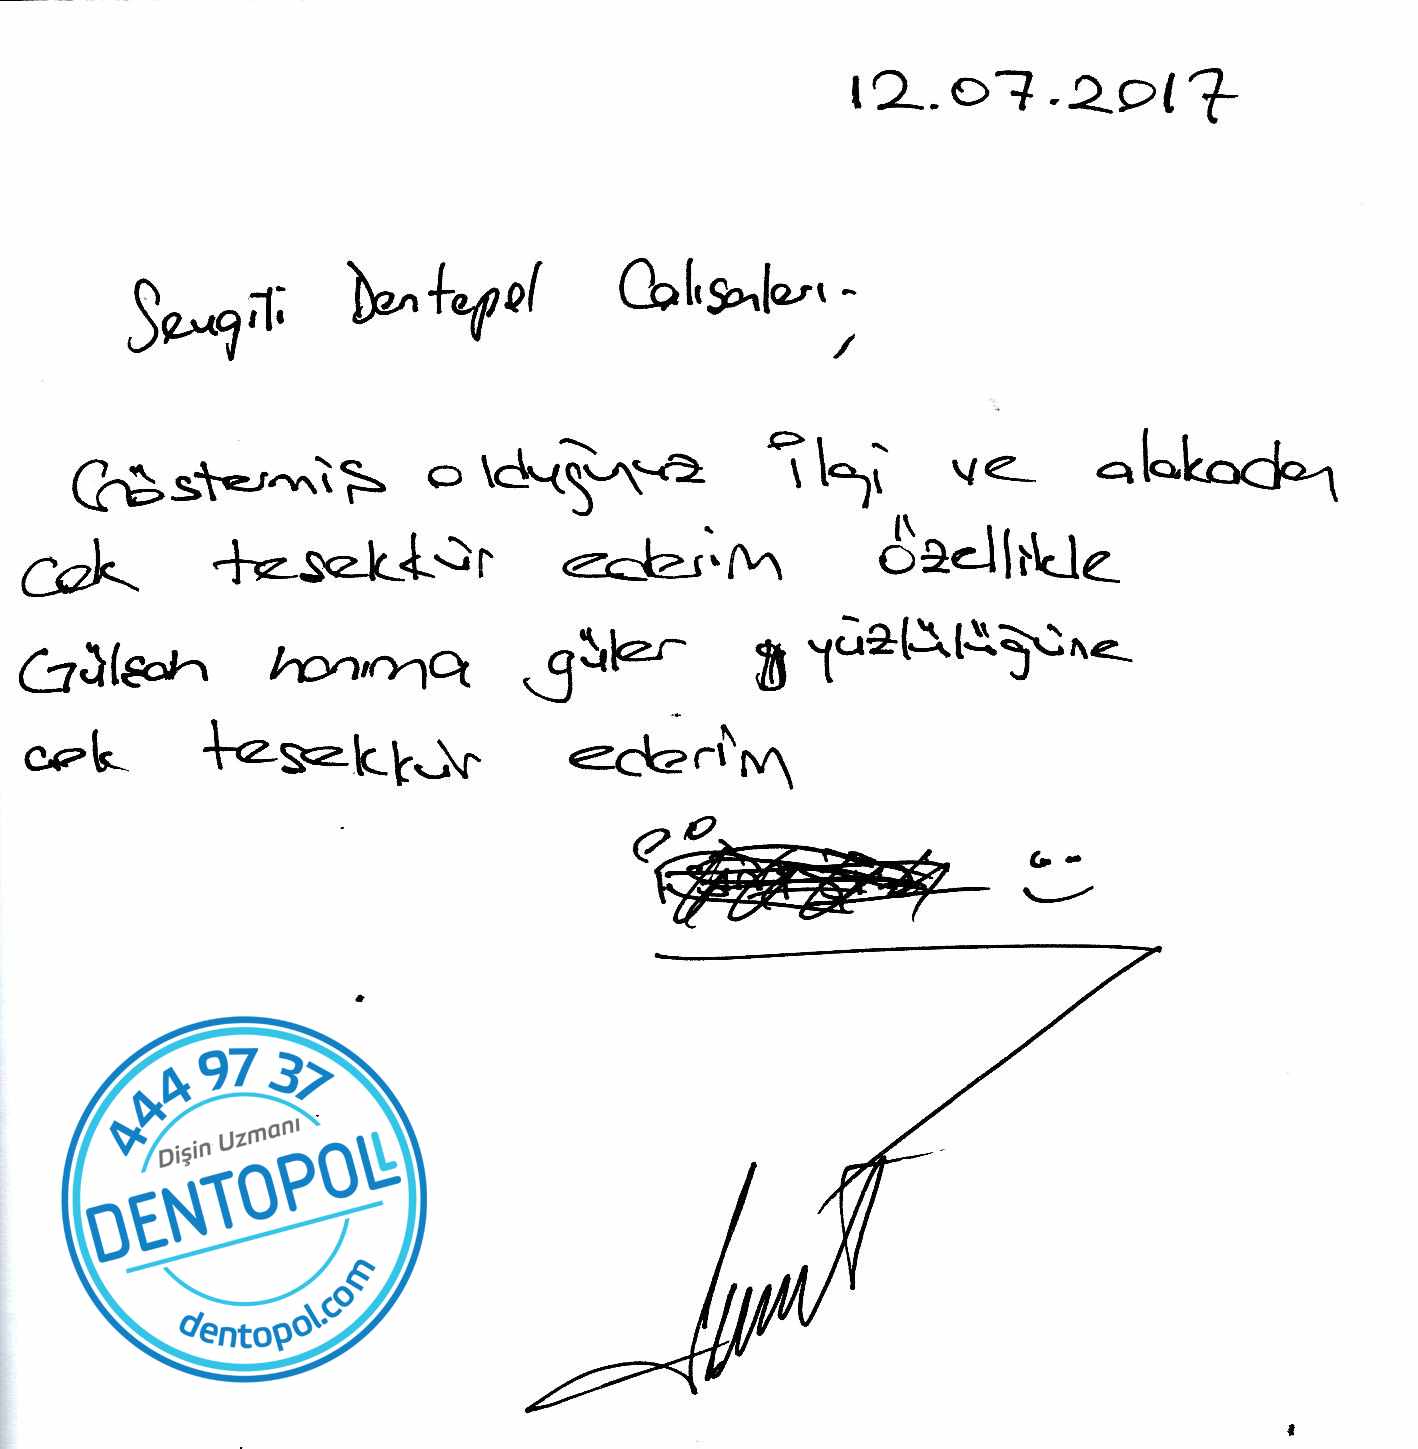 12.07.2017
Sevgili Dentopol Calısanları,
Göstermiş olduğunuz İlgi ve alakadan
cok tesekkür ederim Özellikle
Gülsah hanıma güler yüzlülüğüne
cok tesekkür ederim
444 97 37
Dişin Uzmanı
DENTOPOL
dentopol.com